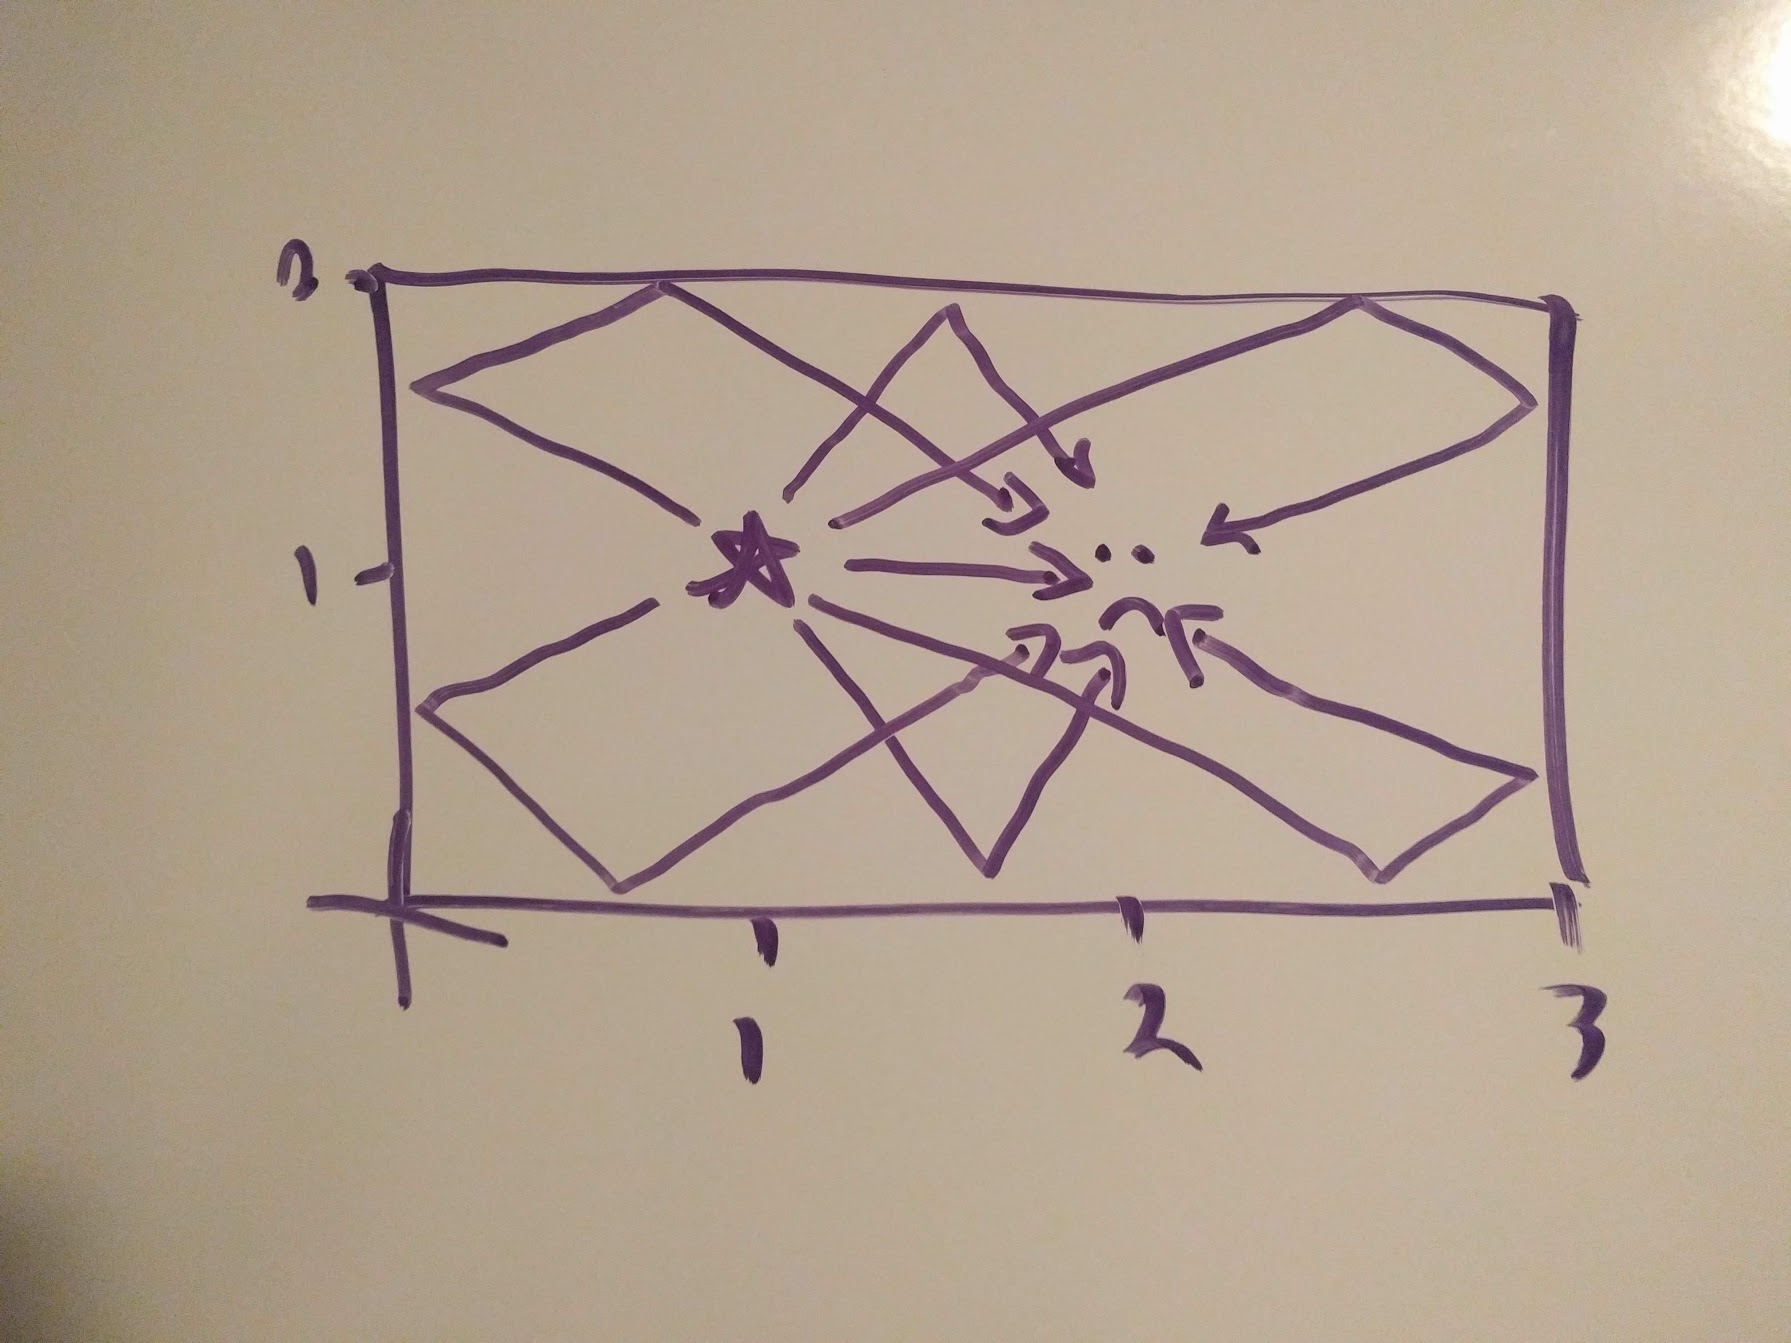 2
1
1 2 3